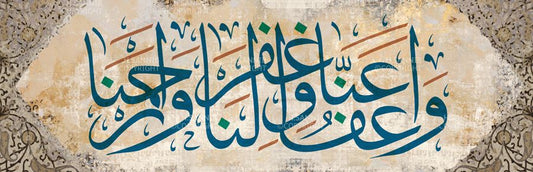 وَاعْفُ عَنَّا وَاغْفِرْ لَنَا وَارْحَمْنَا